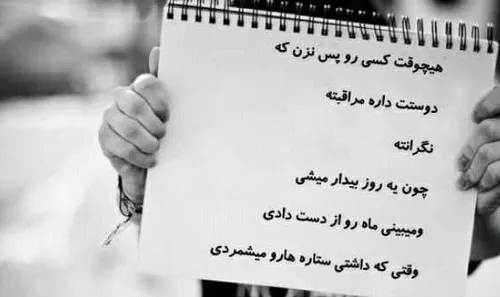 هیچوقت کسی رو پس نزن که
دوستت داره مراقبته
نگرانته
چون یه روز بیدار میشی
ومیبینی ماه رو از دست دادی
وقتی که داشتی ستاره هارو میشمردی